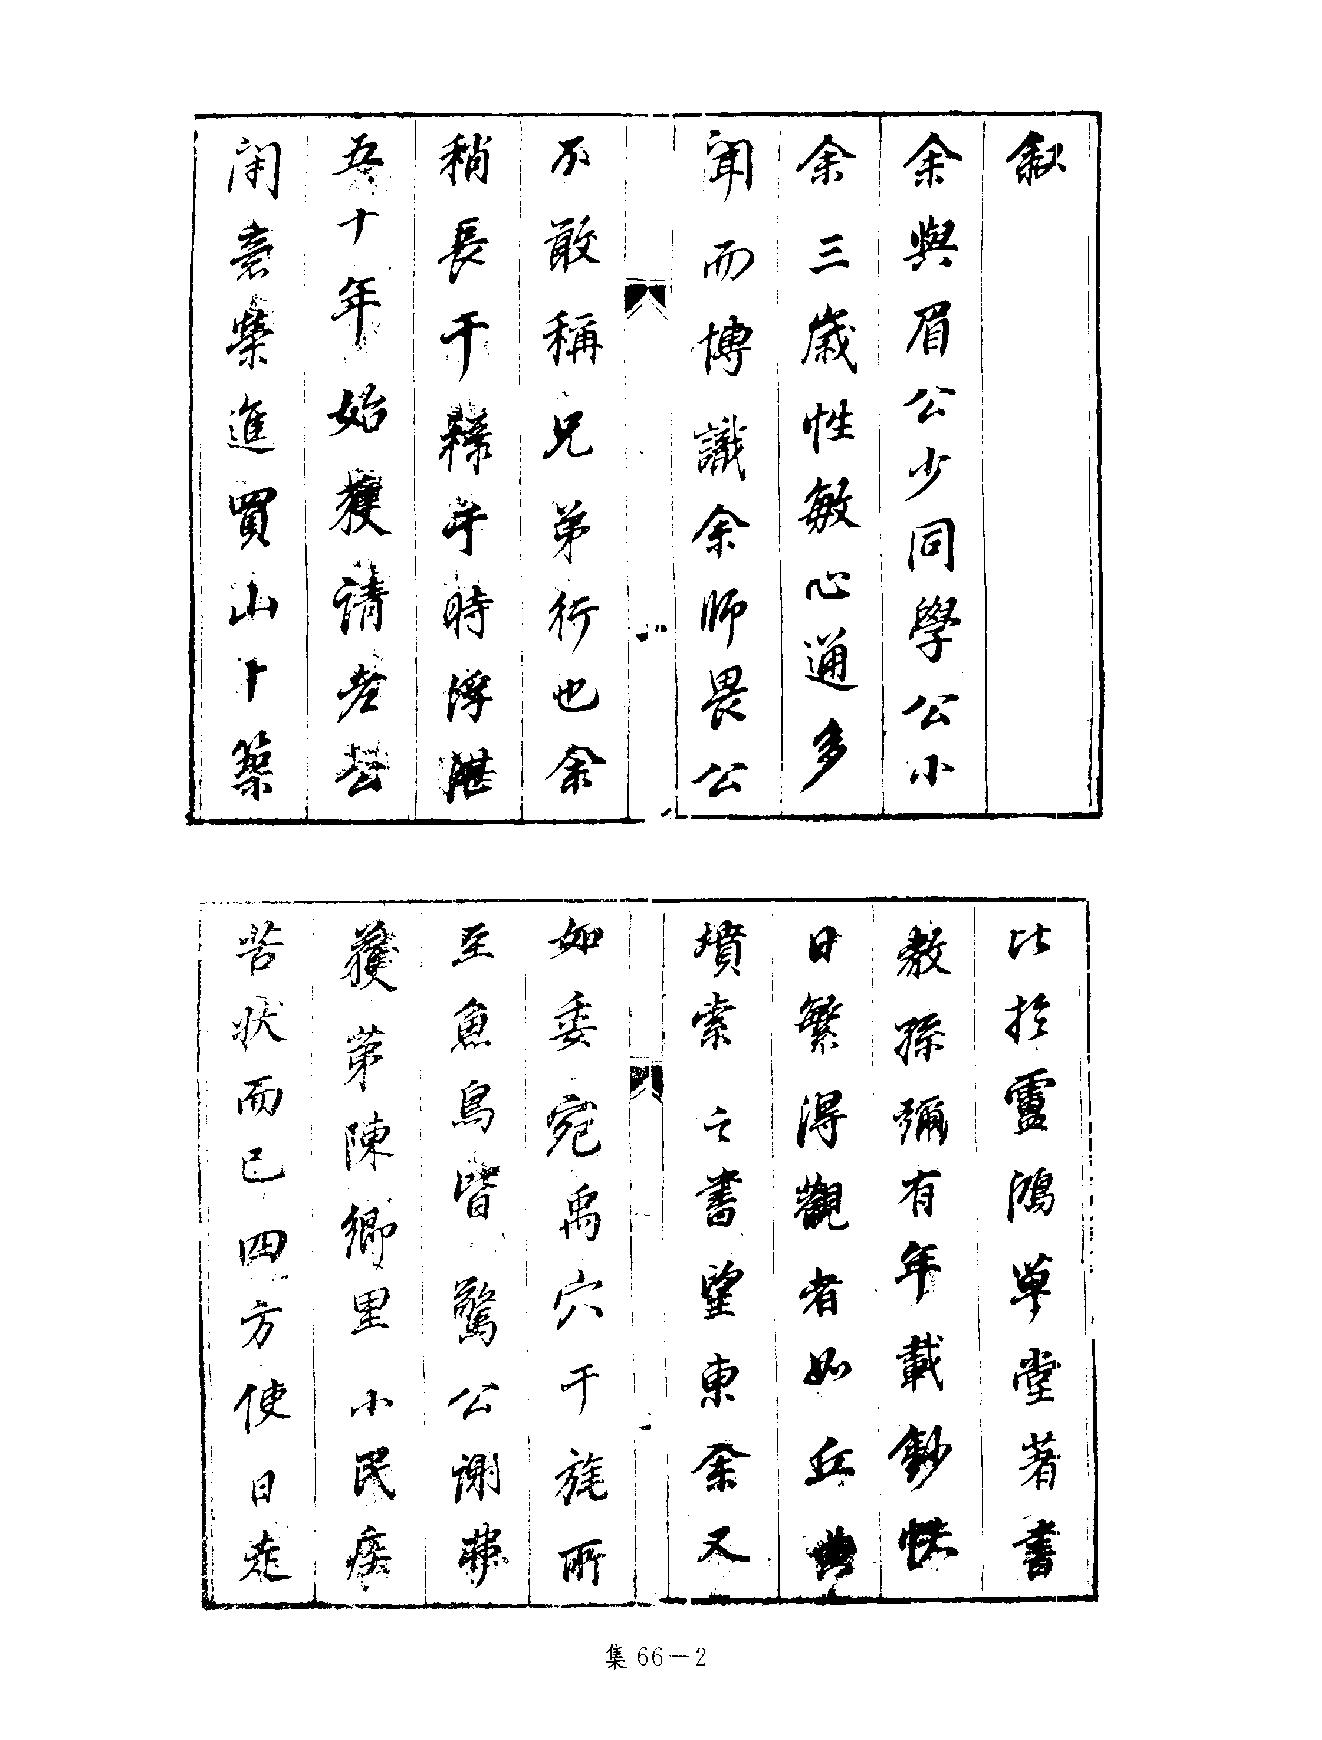 叙
余與眉公少同學公小
余三歲性敏心通多
聞而博識余師畏公
不敢稱兄弟行也余
稍長干祿乎時浮湛
五十年始獲請老公
閉意槩進買山卜築
比於靈鴻草堂著書
教孫彌有年載鈔帙
日繁得觀者如丘典
墳索之書望東余又
如委宛禹穴干旄所
至魚鳥皆驚公謝弗
獲第陳鄉里小民疾
苦狀而已四方使日走
集66－2